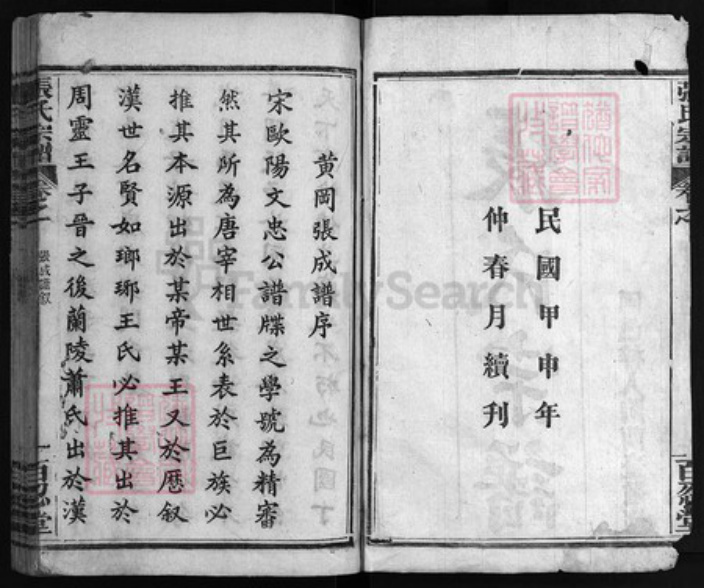 民國甲申年
仲春月續刊
張氏宗譜
黄岡張成譜序
宋歐陽文忠公譜牒之學號為精審
然其所為唐宰相世系表於巨族必
推其本源出於某帝某王又於歷叙
漢世名賢如瑯琊王氏必推其出於
周靈王子晉之後蘭陵蕭氏出於漢
張氏宗譜
卷之一
百忍堂
FamilySearch